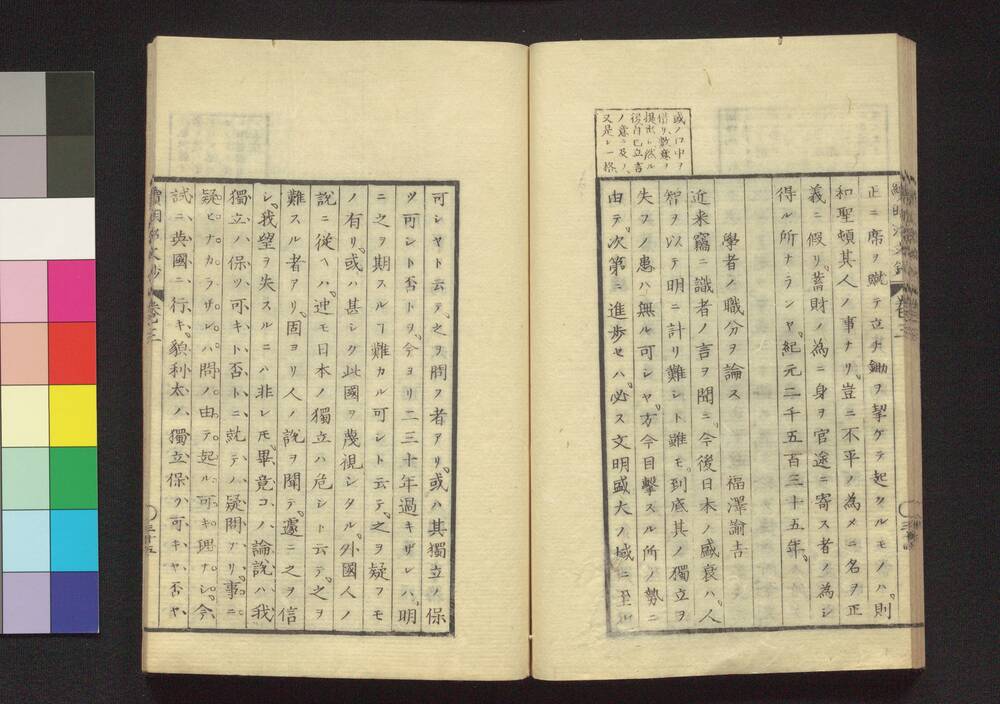 正ニ席ヲ蹴テ立チ鋤ヲ挈ゲテ起ツルモノハ則
和聖頓其人ノ事ナリ豈ニ不平ノ為メニ名ヲ正
義ニ假リ蓄財ノ為ニ身ヲ官途ニ寄ス者ノ為シ
得ル所ナランヤ紀元二千五百三十五年
學者ノ職分ヲ論ス 福澤諭吉
近来竊ニ識者ノ言ヲ聞ニ今後日本ノ盛衰ハ人
智ヲ以テ明ニ計リ難シト雖モ到底其ノ獨立ヲ
失フノ患ハ無ル可シヤ方今目撃スル所ノ勢ニ
由テ次第ニ進歩セハ必ス文明盛大ノ域ニ至ル
或ノ口中ヲ
借リ数難ヲ
提出シ然ル
後自己立言
ノ意ニ及ノ
又是レ一格
可シヤト云テ之ヲ問フ者アリ或ハ其獨立ノ保
ツ可シト否トヲ今ヨリ二三十年過キザレハ明
ニ之ヲ期スルヿ難カル可シト云テ之ヲ疑フモ
ノ有リ或ハ甚シク此國ヲ蔑視シタル外國人ノ
説ニ從ヘハ迚モ日本ノ獨立ハ危シト云テ之ヲ
難スル者アリ固ヨリ人ノ説ヲ聞テ遽ニ之ヲ信
シ我望ヲ失スルニハ非レ𪜈畢竟コノ論説ハ我
獨立ハ保ツ可キト否トニ就テノ疑問ナリ事ニ
疑ヒナカラザレハ問ノ由テ起ル可キ理ナシ今
試ニ英國ニ行キ貌利太ノ獨立保ツ可キヤ否ヤ
續明郷文抄 巻之三 三十五